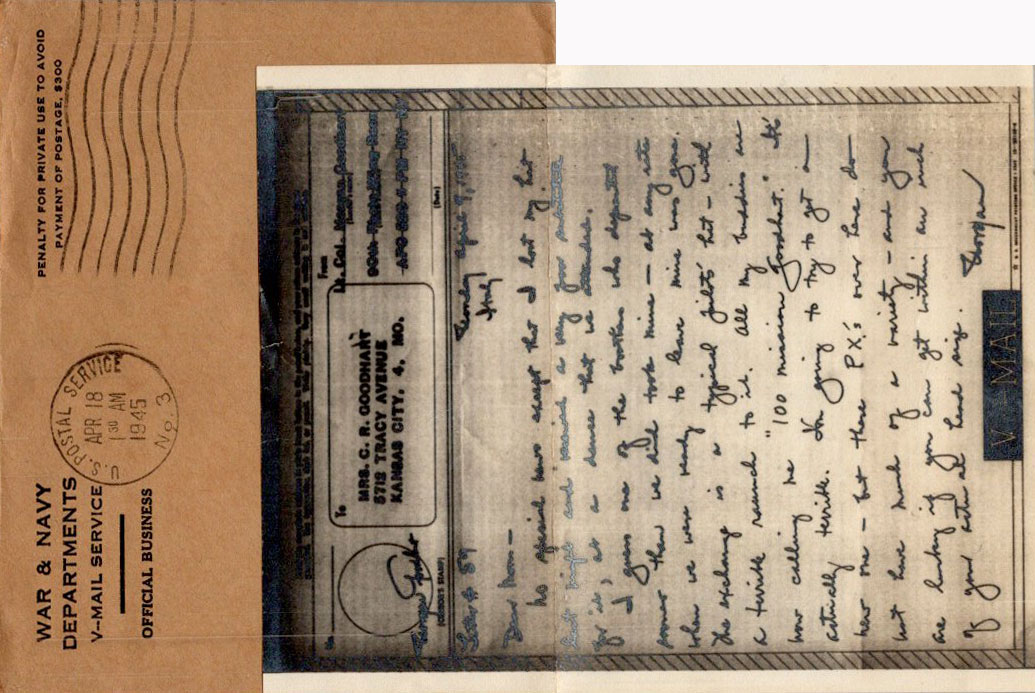 WAR & NAVY
DEPARTMENTS
V-MAIL SERVICE
OFFICIAL BUSINESS
U.S. POSTAL SERVICE
APR 18
1 30 AM
1945
No. 3
PENALTY FOR PRIVATE USE TO AVOID
PAYMENT OF POSTAGE, $300
No.
(CENSOR'S STAMP)
To
MRS. C. R. GOODHART
5712 TRACY AVENUE
KANSAS CITY, 4, MO.
From
Lt. Col. Morgan Goodhart
(Date)
Letter # 59
April 9, 1945
Italy
Dear Mom —
No special news except that I lost my hat
last night and received a very poor substitute
for it, at a dance that we attended.
I guess one of the brothers who departed
sooner than we did took mine — at any rate
when we were ready to leave mine was gone.
The exchange is a typical pilots' hat — with
a terrible raunch to it. All my buddies are
now calling me "100 mission Goodhart." It's
actually terrible. I'm going to try to get a
new one — but these P.X.'s over here do
not have much of a variety — and you
are lucky if you can get within an inch
of your actual head size.
Morgan
V - MAIL